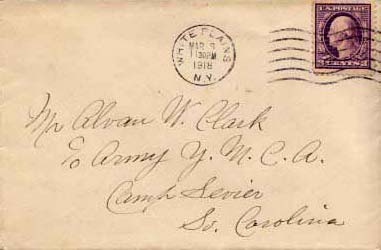 WHITE PLAINS
MAR 9
1130PM
1918
N.Y.
U.S. POSTAGE
3 CENTS 3
Mr Alvan W. Clark
c/o Army Y. M. C. A.
Camp Sevier
So. Carolina